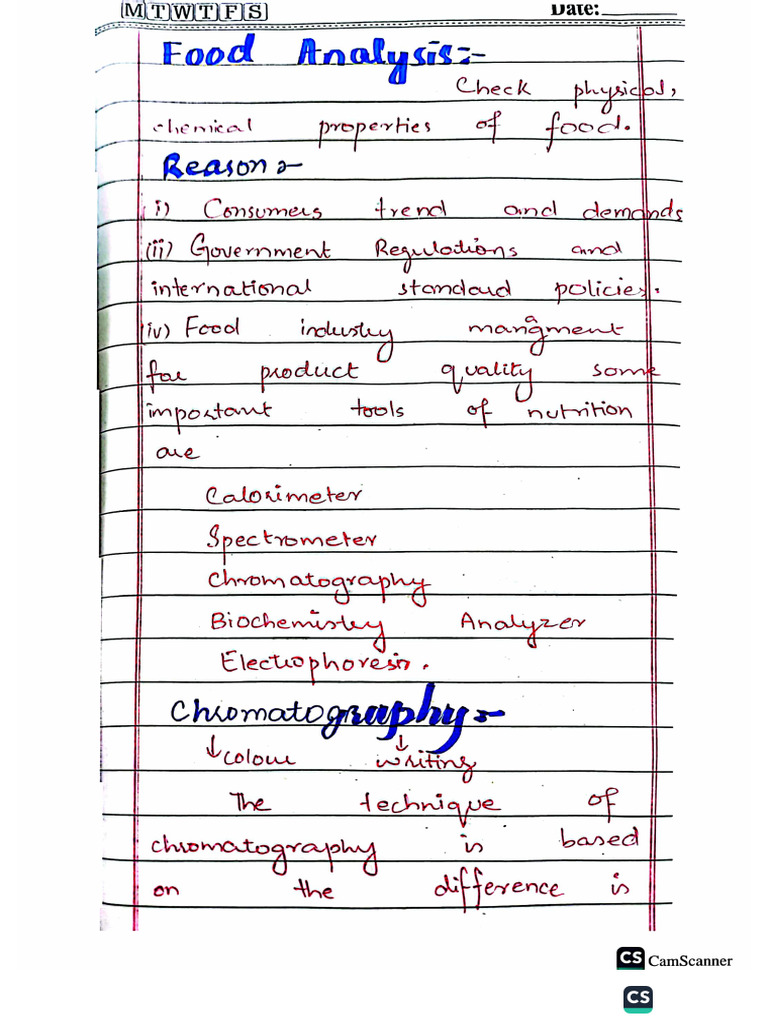 M T W T F S Date:
Food Analysis:-
Check physical,
chemical properties of food.
Reason :-
i) Consumers trend and demands
(ii) Government Regulations and
international standard policies.
iv) Food industry mangment
for product quality some
important tools of nutrition
are
Calorimeter
Spectrometer
Chromatography
Biochemistry Analyzer
Electrophoresis.
Chromatography:-
↓colour ↓writing
The technique of
chromatography is based
on the difference is
CS CamScanner
CS